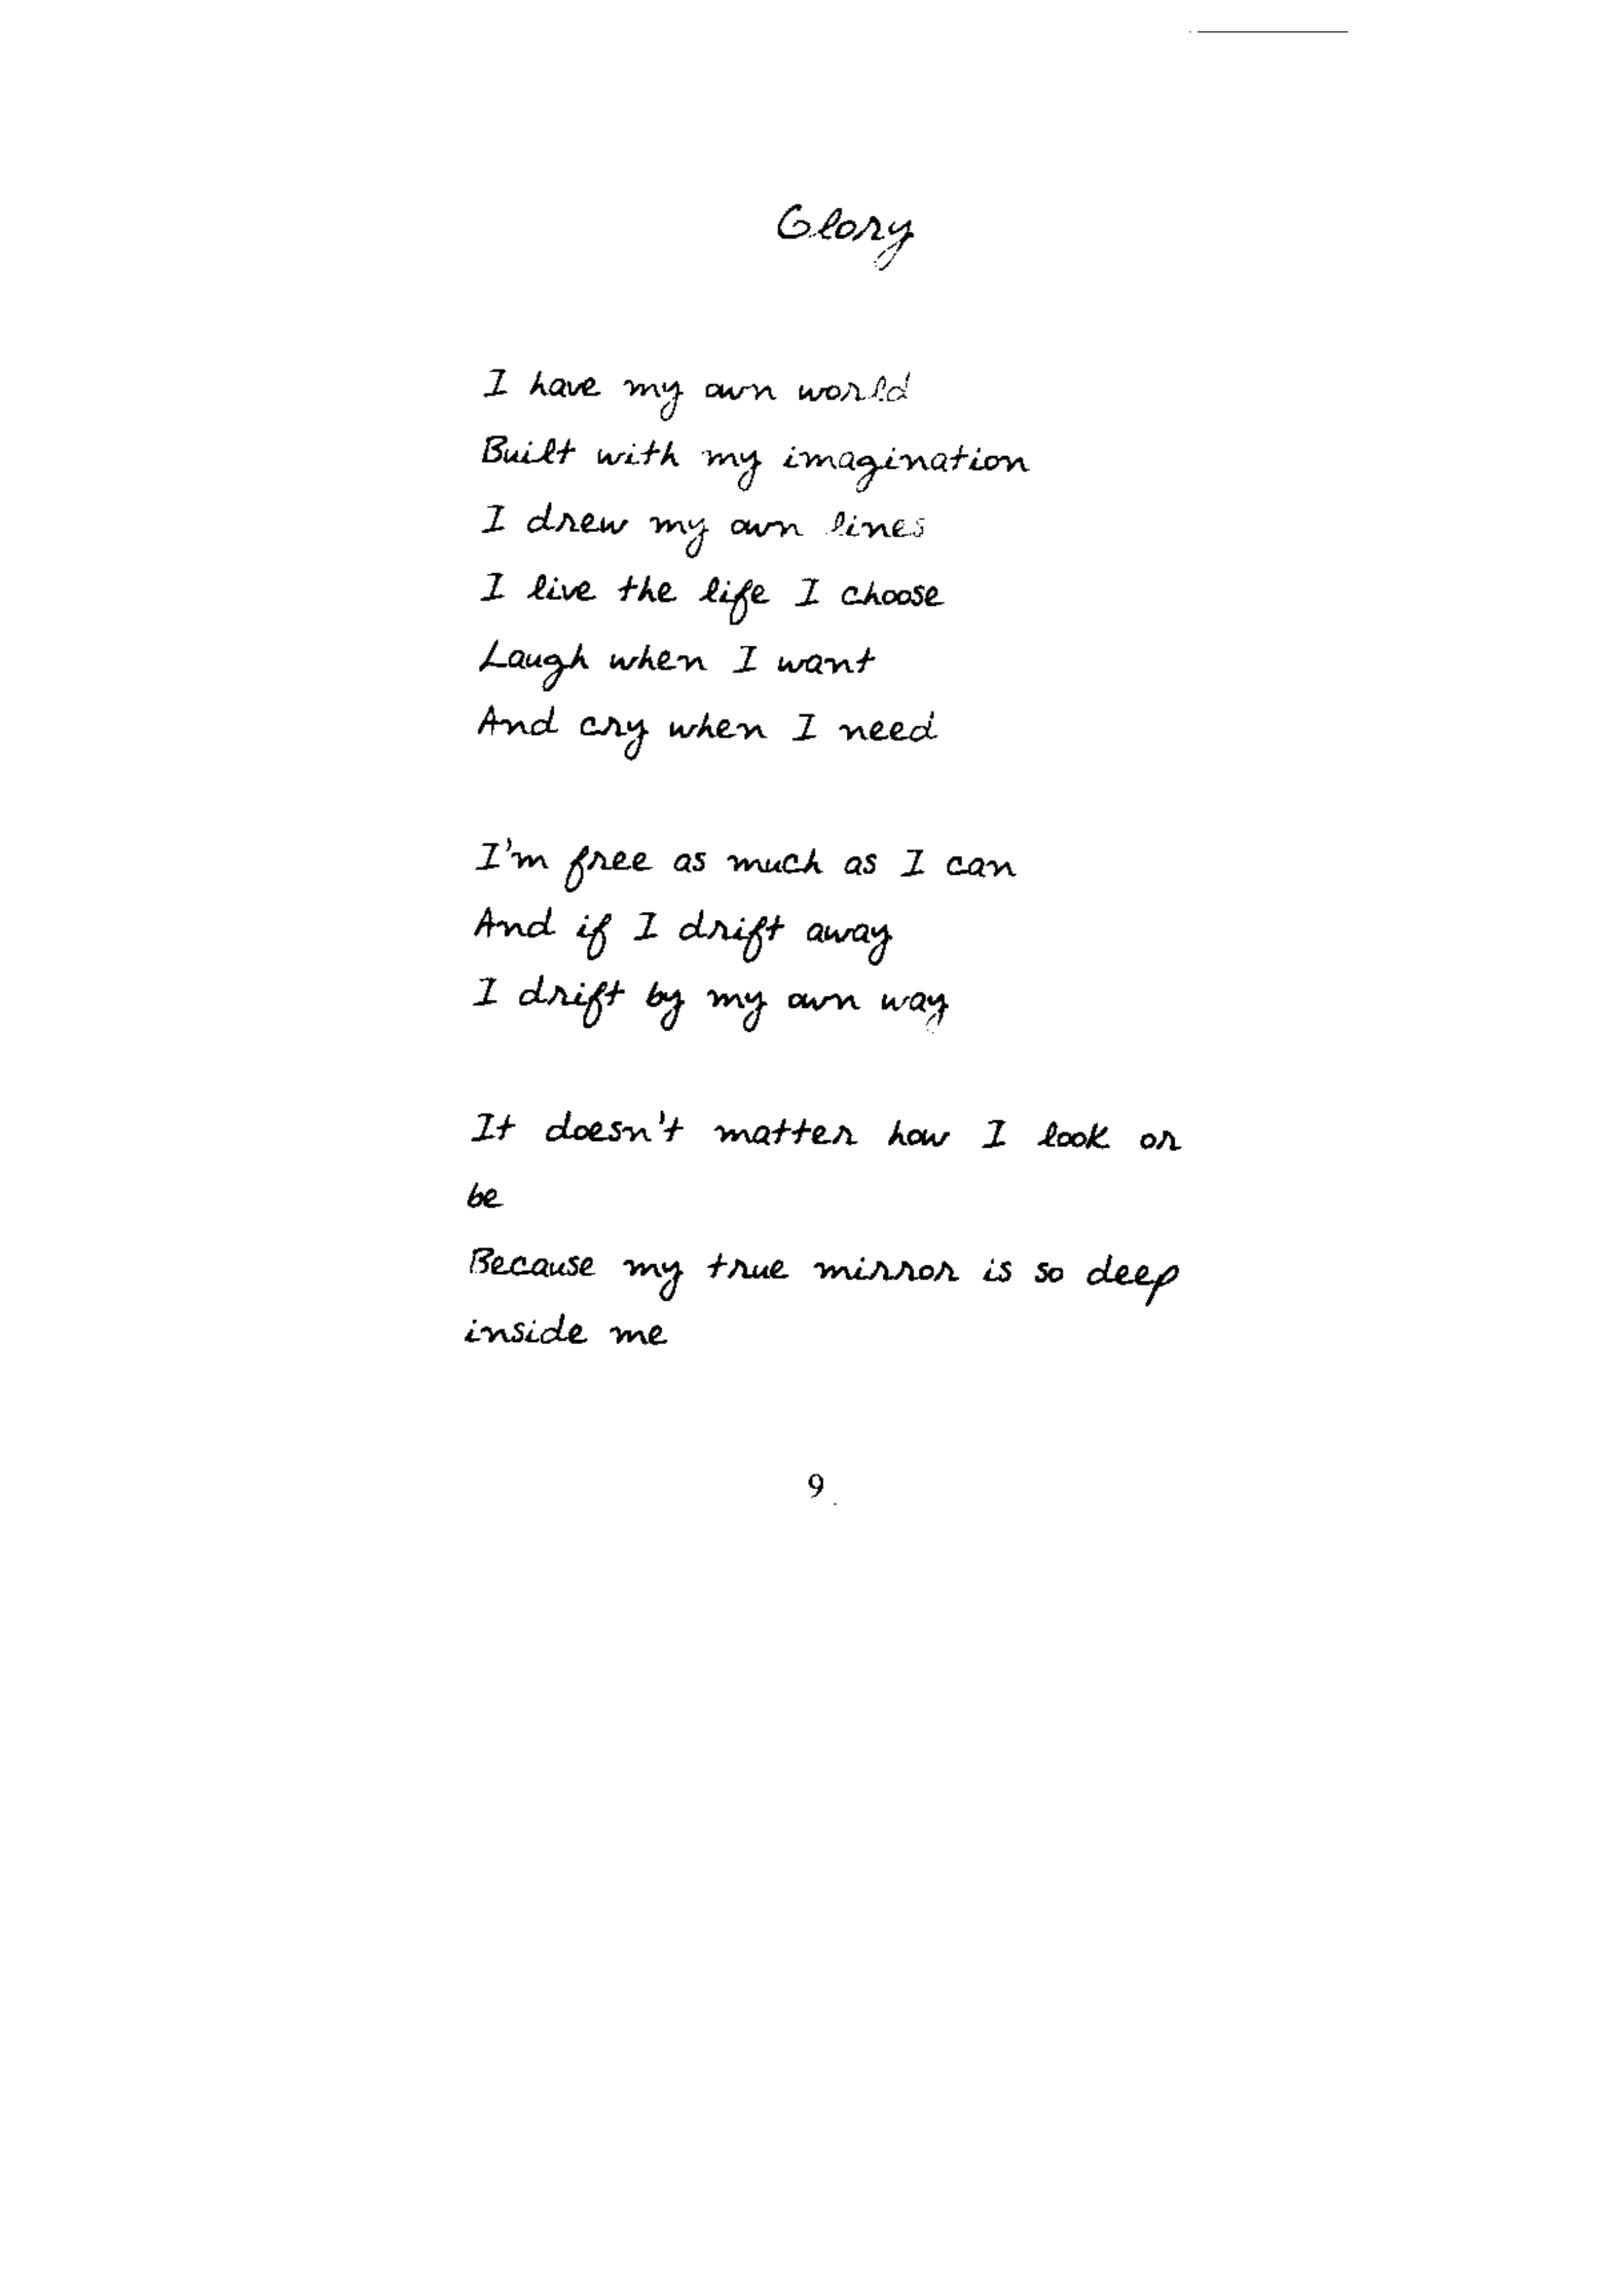 Glory
I have my own world
Built with my imagination
I drew my own lines
I live the life I choose
Laugh when I want
And cry when I need
I'm free as much as I can
And if I drift away
I drift by my own way
It doesn't matter how I look or
be
Because my true mirror is so deep
inside me
9